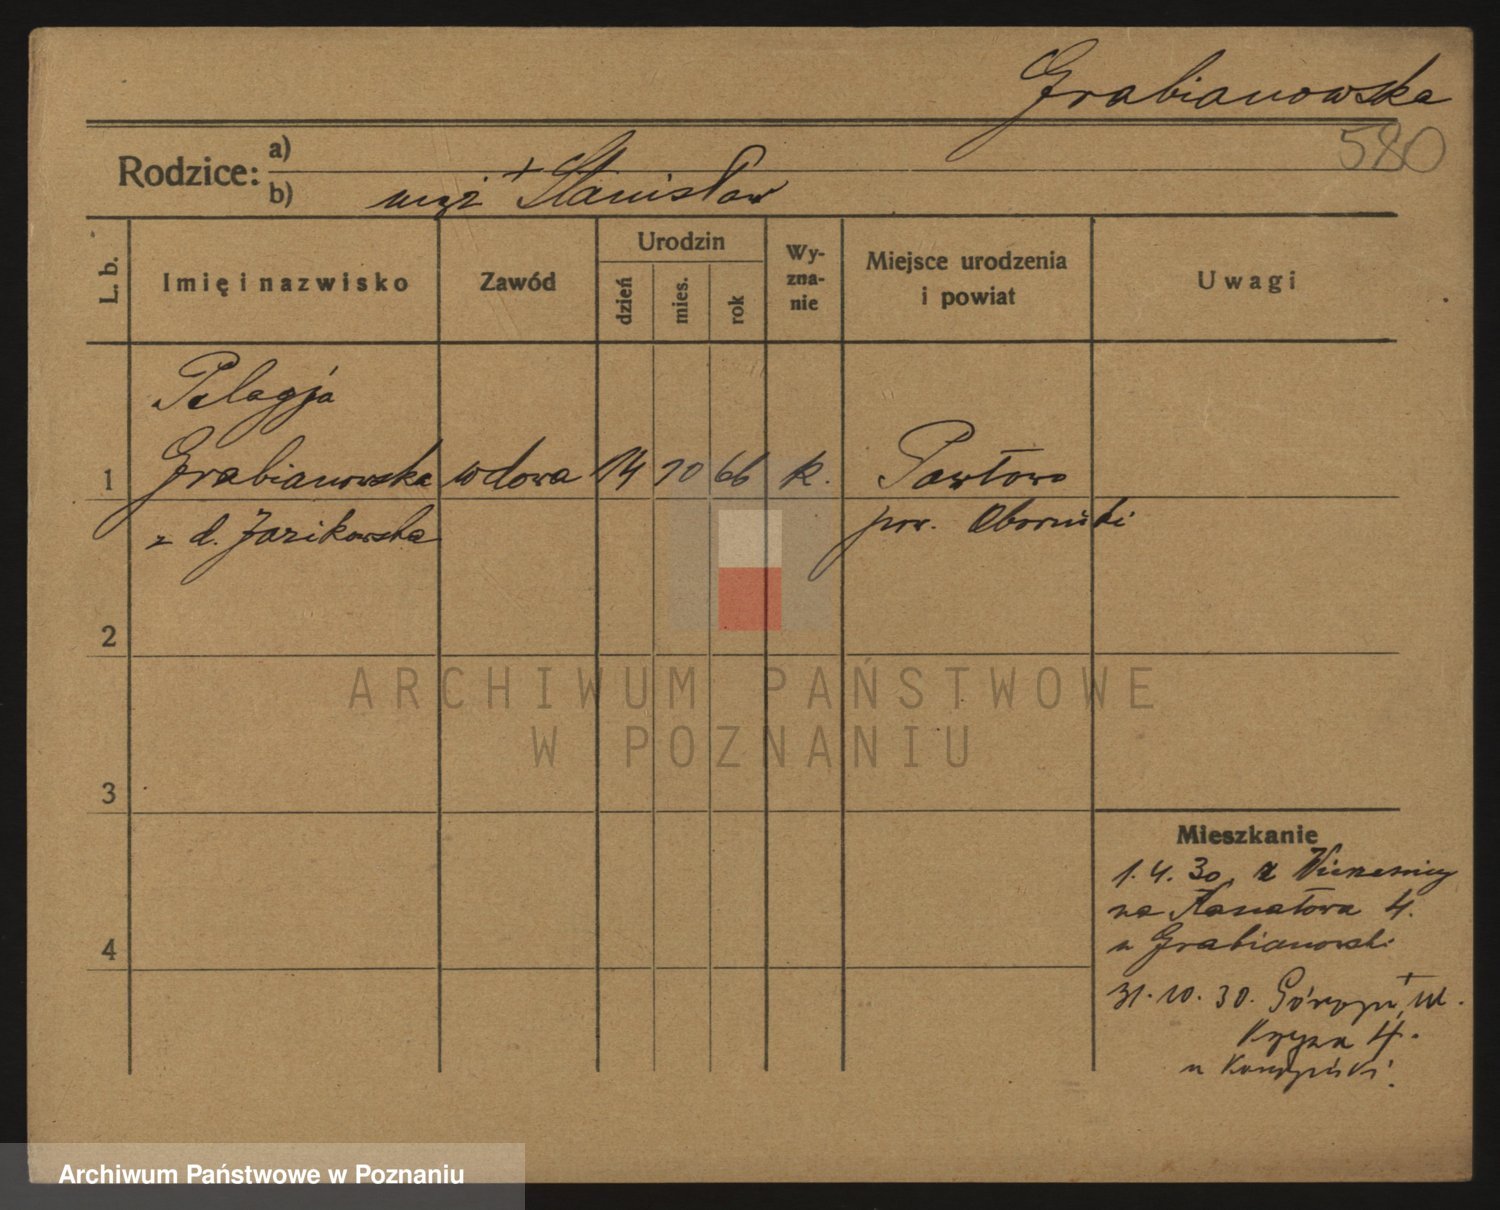 Grabianowska
580
Rodzice: a)
b) mąż + Stanisław
L. b.
Imię i nazwisko
Zawód
Urodzin
dzień
mies.
rok
Wy-
zna-
nie
Miejsce urodzenia
i powiat
Uwagi
Pelagja
1 Grabianowska wdowa 14 10 66 k. Pawłowo
z d. Jazikowska pow. Obornicki
2
3
4
Mieszkanie
1. 4. 30. z
na Kanałowa 4.
u Grabianowski
31. 10. 30.
4.
u
ARCHIWUM PAŃSTWOWE
W POZNANIU
Archiwum Państwowe w Poznaniu